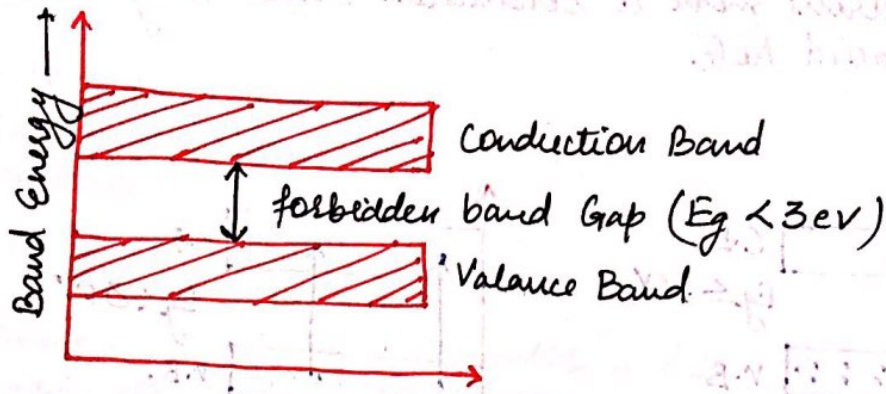 Band Energy
Conduction Band
forbidden band Gap (Eg < 3 ev)
Valance Band